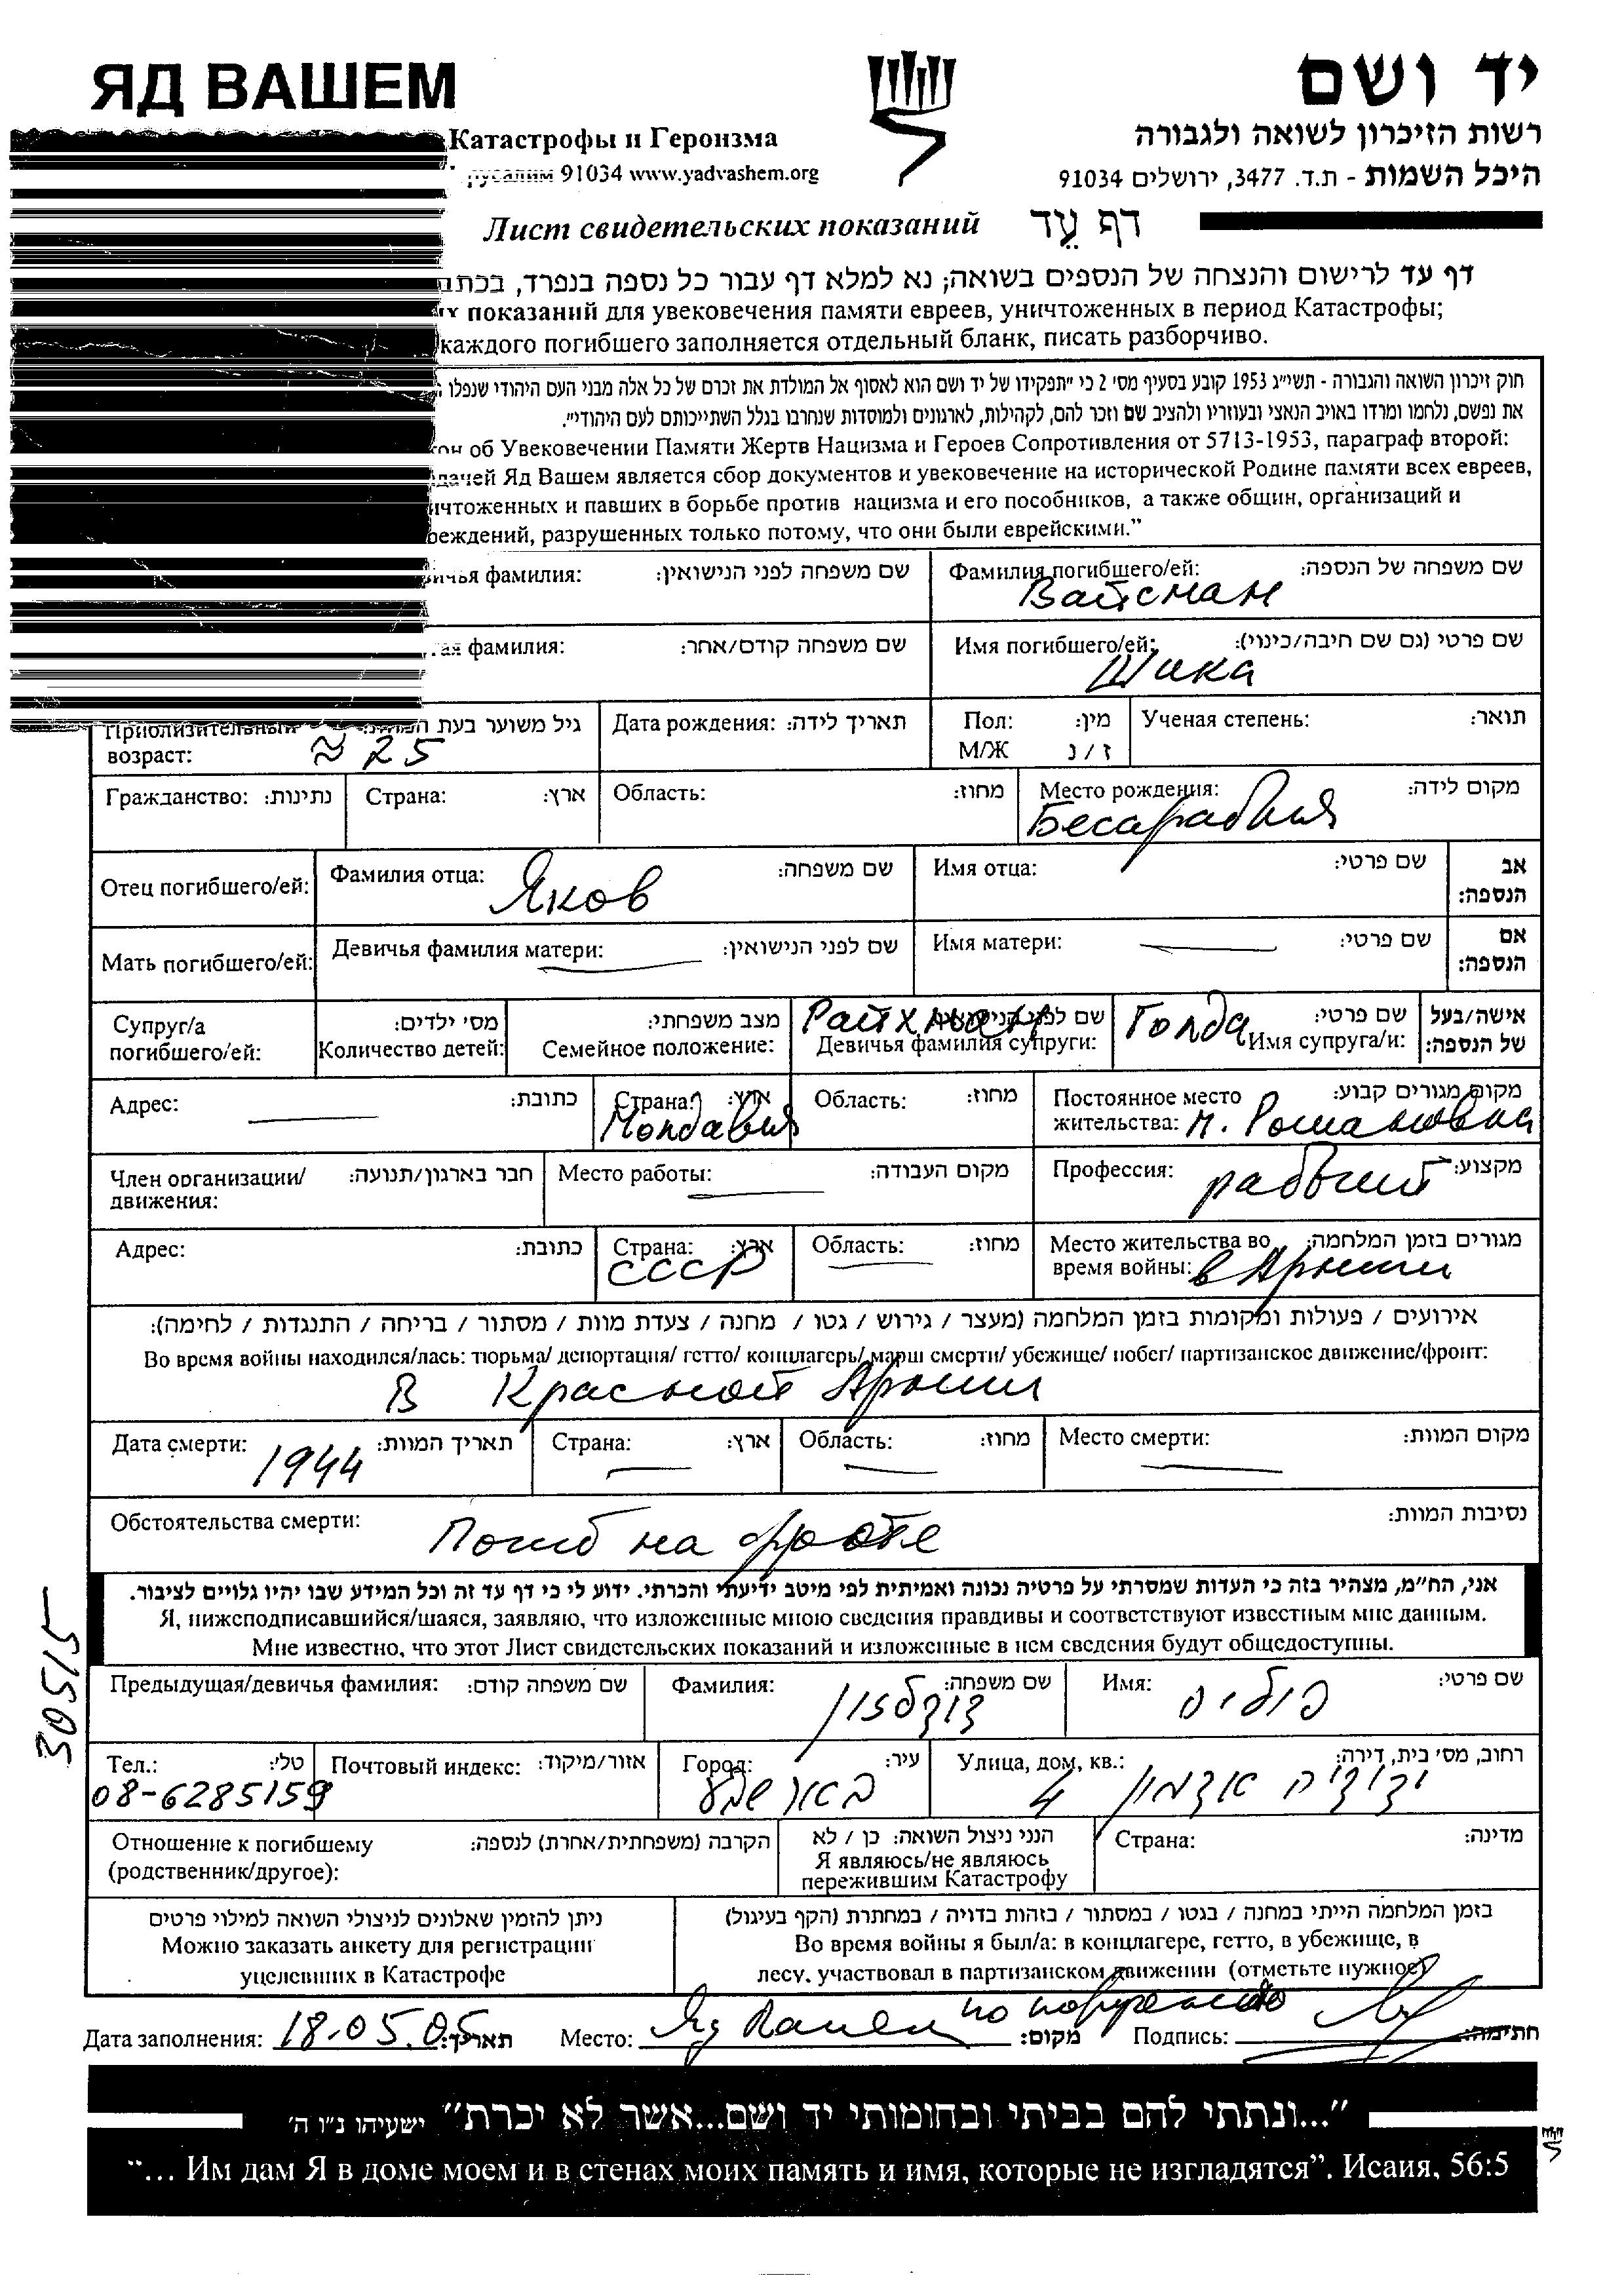 ЯД ВАШЕМ
יד ושם
Катастрофы и Героизма
רשות הזיכרון לשואה ולגבורה
русалим 91034 www.yadvashem.org
היכל השמות - ת.ד. 3477, ירושלים 91034
Лист свидетельских показаний
דף עֵד
דף עד לרישום והנצחה של הנספים בשואה; נא למלא דף עבור כל נספה בנפרד, בכתב
показаний для увековечения памяти евреев, уничтоженных в период Катастрофы;
каждого погибшего заполняется отдельный бланк, писать разборчиво.
חוק זיכרון השואה והגבורה - תשי״ג 1953 קובע בסעיף מס׳ 2 כי ״תפקידו של יד ושם הוא לאסוף אל המולדת את זכרם של כל אלה מבני העם היהודי שנפלו
את נפשם, נלחמו ומרדו באויב הנאצי ובעוזריו ולהציב שם וזכר להם, לקהילות, לארגונים ולמוסדות שנחרבו בגלל השתייכותם לעם היהודי״.
кон об Увековечении Памяти Жертв Нацизма и Героев Сопротивления от 5713-1953, параграф второй:
дачей Яд Вашем является сбор документов и увековечение на исторической Родине памяти всех евреев,
ичтоженных и павших в борьбе против нацизма и его пособников, а также общин, организаций и
реждений, разрушенных только потому, что они были еврейскими.”
שם משפחה של הנספה: Фамилия погибшего/ей: Вайсман
שם משפחה לפני הנישואין: ичья фамилия:
שם פרטי (גם שם חיבה/כינוי): Имя погибшего/ей: Шика
שם משפחה קודם/אחר: гая фамилия:
תואר: Ученая степень:
מין: Пол:
ז / נ М/Ж
תאריך לידה: Дата рождения:
גיל משוער בעת Приблизительный
возраст: ≈ 25
מקום לידה: Место рождения: Бесарабия
מחוז: Область:
ארץ: Страна:
נתינות: Гражданство:
אב הנספה: Отец погибшего/ей:
שם פרטי: Имя отца:
שם משפחה: Фамилия отца: Яков
אם הנספה: Мать погибшего/ей:
שם פרטי: Имя матери: —
שם לפני הנישואין: Девичья фамилия матери: —
אישה/בעל של הנספה: Супруг/а погибшего/ей:
שם פרטי: Имя супруга/и: Голда
שם לפני הנישואין: Девичья фамилия супруги: Райхман
מצב משפחתי: Семейное положение:
מס׳ ילדים: Количество детей:
מקום מגורים קבוע: Постоянное место
жительства: м.
מחוז: Область:
ארץ: Страна: Молдавия
כתובת: Адрес: —
מקצוע: Профессия: рабочий
מקום העבודה: Место работы: —
חבר בארגון/תנועה: Член организации/
движения:
מגורים בזמן המלחמה: Место жительства во
время войны: в Армии
מחוז: Область: —
ארץ: Страна: СССР
כתובת: Адрес:
אירועים / פעולות ומקומות בזמן המלחמה (מעצר / גירוש / גטו / מחנה / צעדת מוות / מסתור / בריחה / התנגדות / לחימה):
Во время войны находился/лась: тюрьма/ депортация/ гетто/ концлагерь/ марш смерти/ убежище/ побег/ партизанское движение/фронт:
В Красной Армии
מקום המוות: Место смерти: —
מחוז: Область: —
ארץ: Страна: —
תאריך המוות: Дата смерти: 1944
נסיבות המוות: Обстоятельства смерти: Погиб на фронте
אני, הח״מ, מצהיר בזה כי העדות שמסרתי על פרטיה נכונה ואמיתית לפי מיטב ידיעתי והכרתי. ידוע לי כי דף עד זה וכל המידע שבו יהיו גלויים לציבור.
Я, нижеподписавшийся/шаяся, заявляю, что изложенные мною сведения правдивы и соответствуют известным мне данным.
Мне известно, что этот Лист свидетельских показаний и изложенные в нем сведения будут общедоступны.
30515
שם פרטי: Имя:
שם משפחה: Фамилия:
שם משפחה קודם: Предыдущая/девичья фамилия:
רחוב, מס׳ בית, דירה: Улица, дом, кв.: 4
עיר: Город: באר שבע
אזור/מיקוד: Почтовый индекс:
טל׳: Тел.: 08-6285159
מדינה: Страна:
הנני ניצול השואה: כן / לא
Я являюсь/не являюсь
пережившим Катастрофу
הקרבה (משפחתית/אחרת) לנספה: Отношение к погибшему
(родственник/другое):
בזמן המלחמה הייתי במחנה / בגטו / במסתור / בזהות בדויה / במחתרת (הקף בעיגול)
Во время войны я был/а: в концлагере, гетто, в убежище, в
лесу, участвовал в партизанском движении (отметьте нужное)
ניתן להזמין שאלונים לניצולי השואה למילוי פרטים
Можно заказать анкету для регистрации
уцелевших в Катастрофе
Дата заполнения: 18.05.05 תאריך: Место: Яд Вашем מקום: по поручению Подпись: חתימה:
״...ונתתי להם בביתי ובחומותי יד ושם...אשר לא יכרת״ ישעיהו נ״ו ה׳
“... Им дам Я в доме моем и в стенах моих память и имя, которые не изгладятся”. Исаия, 56:5